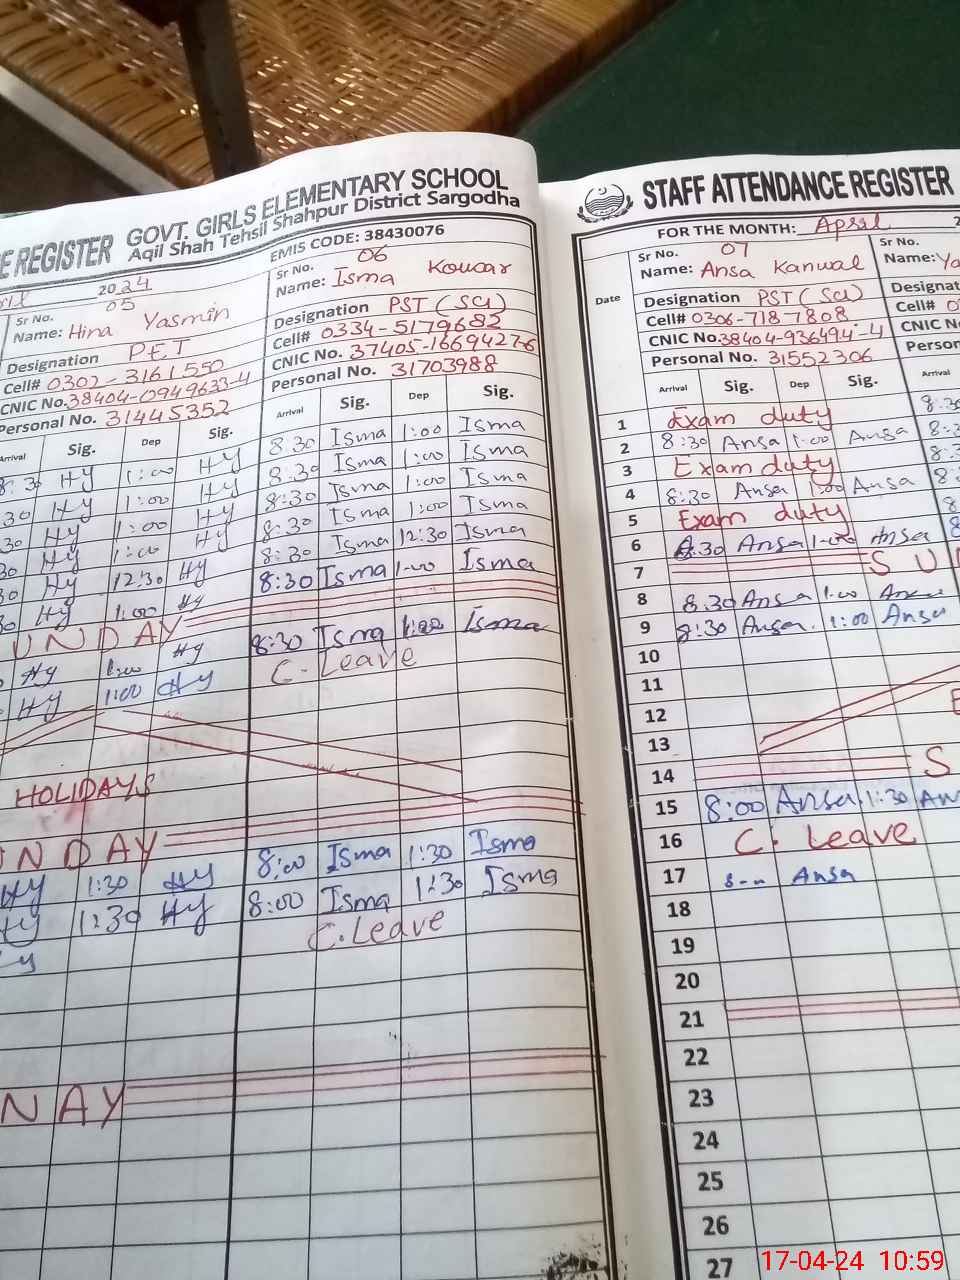 E REGISTER GOVT. GIRLS ELEMENTARY SCHOOL
Aqil Shah Tehsil Shahpur District Sargodha
EMIS CODE: 38430076
2024
Sr No. 05
Name: Hina Yasmin
Designation PET
Cell# 0302-3161550
CNIC No. 38404-0949633-4
Personal No. 31445352
Arrival Sig. Dep Sig.
8:30 Hy 1:00 Hy
30 Hy 1:00 Hy
30 Hy 1:00 Hy
30 Hy 1:00 Hy
30 Hy 12:30 Hy
30 Hy 1:00 Hy
UNDAY
Hy 1:00 Hy
Hy 1:00 Hy
HOLIDAYS
UNDAY
Hy 1:30 Hy
Hy 1:30 Hy
NAY
Sr No. 06
Name: Isma Kousar
Designation PST (Sci)
Cell# 0334-5179682
CNIC No. 37405-1669427-6
Personal No. 31703988
Arrival Sig. Dep Sig.
8:30 Isma 1:00 Isma
8:30 Isma 1:00 Isma
8:30 Isma 1:00 Isma
8:30 Isma 1:00 Isma
8:30 Isma 12:30 Isma
8:30 Isma 1:00 Isma
8:30 Isma 1:00 Isma
C. Leave
8:00 Isma 1:30 Isma
8:00 Isma 1:30 Isma
C. Leave
STAFF ATTENDANCE REGISTER
FOR THE MONTH: April 2
Date
Sr No. 07
Name: Ansa Kanwal
Designation PST (Sci)
Cell# 0306-718-7808
CNIC No. 38404-936494-4
Personal No. 31552306
Arrival Sig. Dep Sig.
1 Exam duty
2 8:30 Ansa 1:00 Ansa
3 Exam duty
4 8:30 Ansa 1:00 Ansa
5 Exam duty
6 8:30 Ansa 1:00 Ansa
7 SU
8 8:30 Ansa 1:00 Ansa
9 8:30 Ansa 1:00 Ansa
10
11
12
13
14 S
15 8:00 Ansa 1:30 An
16 C. Leave
17 Ansa
18
19
20
21
22
23
24
25
26
27
Sr No.
Name: Ya
Designat
Cell# 0
CNIC No
Person
Arrival
8:30
17-04-24 10:59